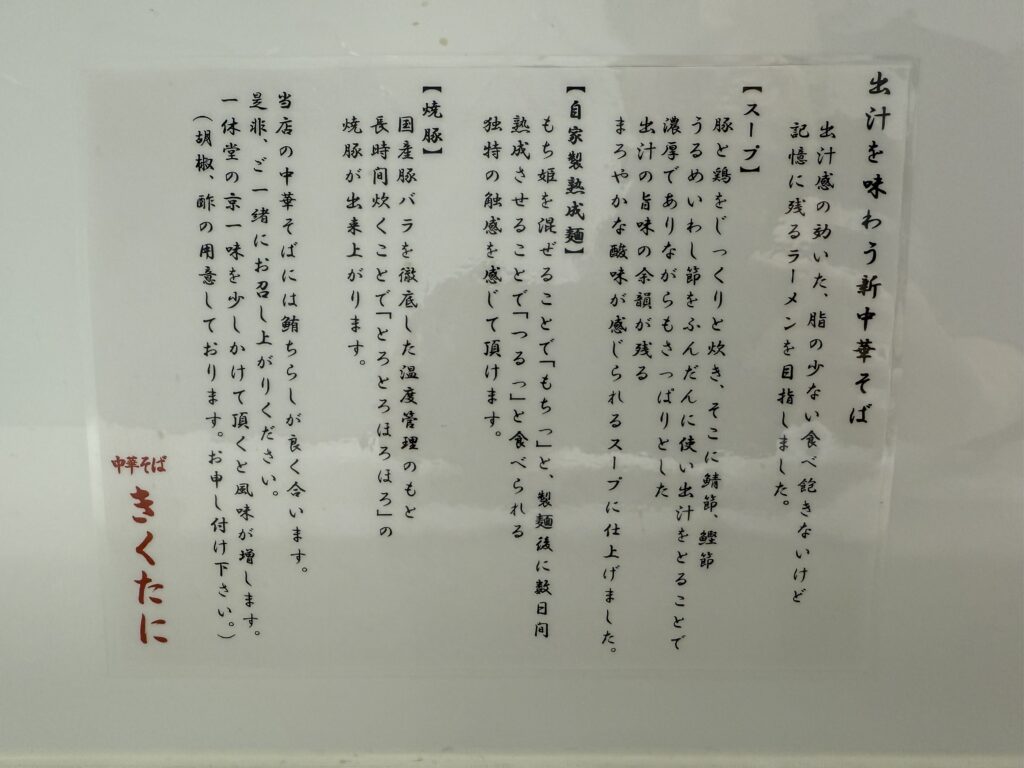 出汁を味わう新中華そば
出汁感の効いた、脂の少ない食べ飽きないけど
記憶に残るラーメンを目指しました。
【スープ】
豚と鶏をじっくりと炊き、そこに鯖節、鰹節
うるめいわし節をふんだんに使い出汁をとることで
濃厚でありながらもさっぱりとした
出汁の旨味の余韻が残る
まろやかな酸味が感じられるスープに仕上げました。
【自家製熟成麺】
もち姫を混ぜることで「もちっ」と、製麺後に数日間
熟成させることで「つるっ」と食べられる
独特の触感を感じて頂けます。
【焼豚】
国産豚バラを徹底した温度管理のもと
長時間炊くことで「とろとろほろほろ」の
焼豚が出来上がります。
当店の中華そばには鮪ちらしが良く合います。
是非、ご一緒にお召し上がりください。
一休堂の京一味を少しかけて頂くと風味が増します。
（胡椒、酢の用意しております。お申し付け下さい。）
中華そば
きくたに